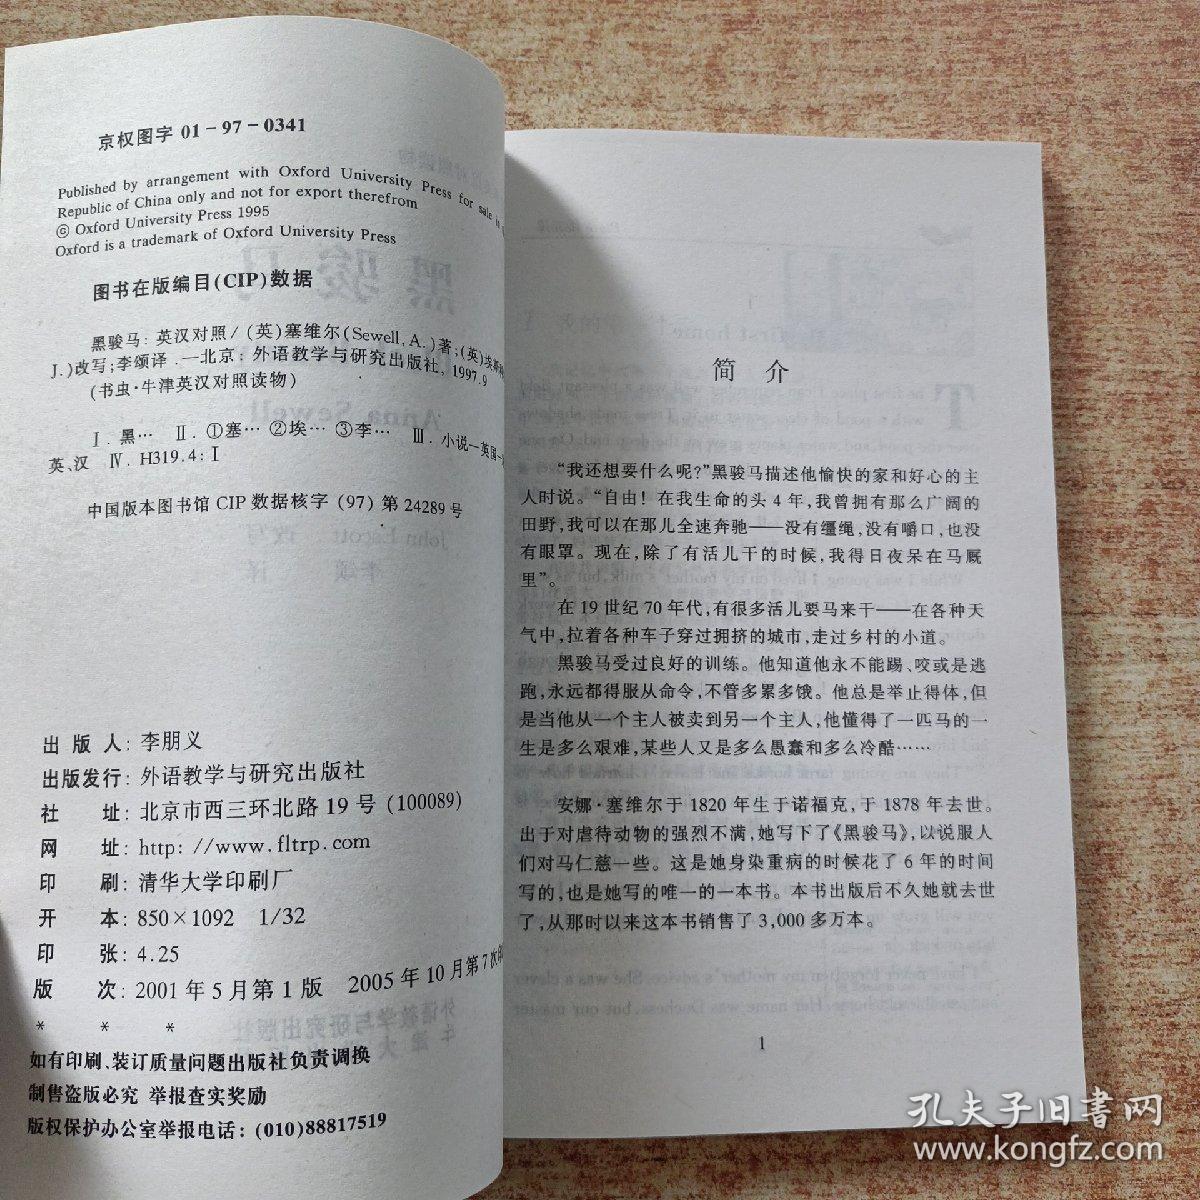 京权图字 01－97－0341
Published by arrangement with Oxford University Press for sale in
Republic of China only and not for export therefrom
© Oxford University Press 1995
Oxford is a trademark of Oxford University Press
图书在版编目(CIP)数据
黑骏马: 英汉对照/ (英)塞维尔(Sewell,A.)著;(英)埃斯科
J.)改写;李颂译.—北京: 外语教学与研究出版社, 1997.9
(书虫·牛津英汉对照读物)
Ⅰ. 黑… Ⅱ. ①塞… ②埃… ③李… Ⅲ. 小说—英国—
英、汉 Ⅳ. H319.4: I
中国版本图书馆 CIP 数据核字 (97) 第 24289 号
出 版 人: 李朋义
出版发行: 外语教学与研究出版社
社 址: 北京市西三环北路 19 号 (100089)
网 址: http: //www.fltrp.com
印 刷: 清华大学印刷厂
开 本: 850×1092 1/32
印 张: 4.25
版 次: 2001 年 5 月第 1 版 2005 年 10 月第 7 次印
* * *
如有印刷、装订质量问题出版社负责调换
制售盗版必究 举报查实奖励
版权保护办公室举报电话: (010)88817519
简 介
“我还想要什么呢?”黑骏马描述他愉快的家和好心的主
人时说。“自由! 在我生命的头 4 年,我曾拥有那么广阔的
田野,我可以在那儿全速奔驰——没有缰绳,没有嚼口,也没
有眼罩。现在,除了有活儿干的时候,我得日夜呆在马厩
里”。
在 19 世纪 70 年代,有很多活儿要马来干——在各种天
气中,拉着各种车子穿过拥挤的城市,走过乡村的小道。
黑骏马受过良好的训练。他知道他永不能踢、咬或是逃
跑,永远都得服从命令,不管多累多饿。他总是举止得体,但
是当他从一个主人被卖到另一个主人,他懂得了一匹马的一
生是多么艰难,某些人又是多么愚蠢和多么冷酷……
安娜·塞维尔于 1820 年生于诺福克,于 1878 年去世。
出于对虐待动物的强烈不满,她写下了《黑骏马》,以说服人
们对马仁慈一些。这是她身染重病的时候花了 6 年的时间
写的,也是她写的唯一的一本书。本书出版后不久她就去世
了,从那时以来这本书销售了 3,000 多万本。
1
孔夫子旧书网
www.kongfz.com